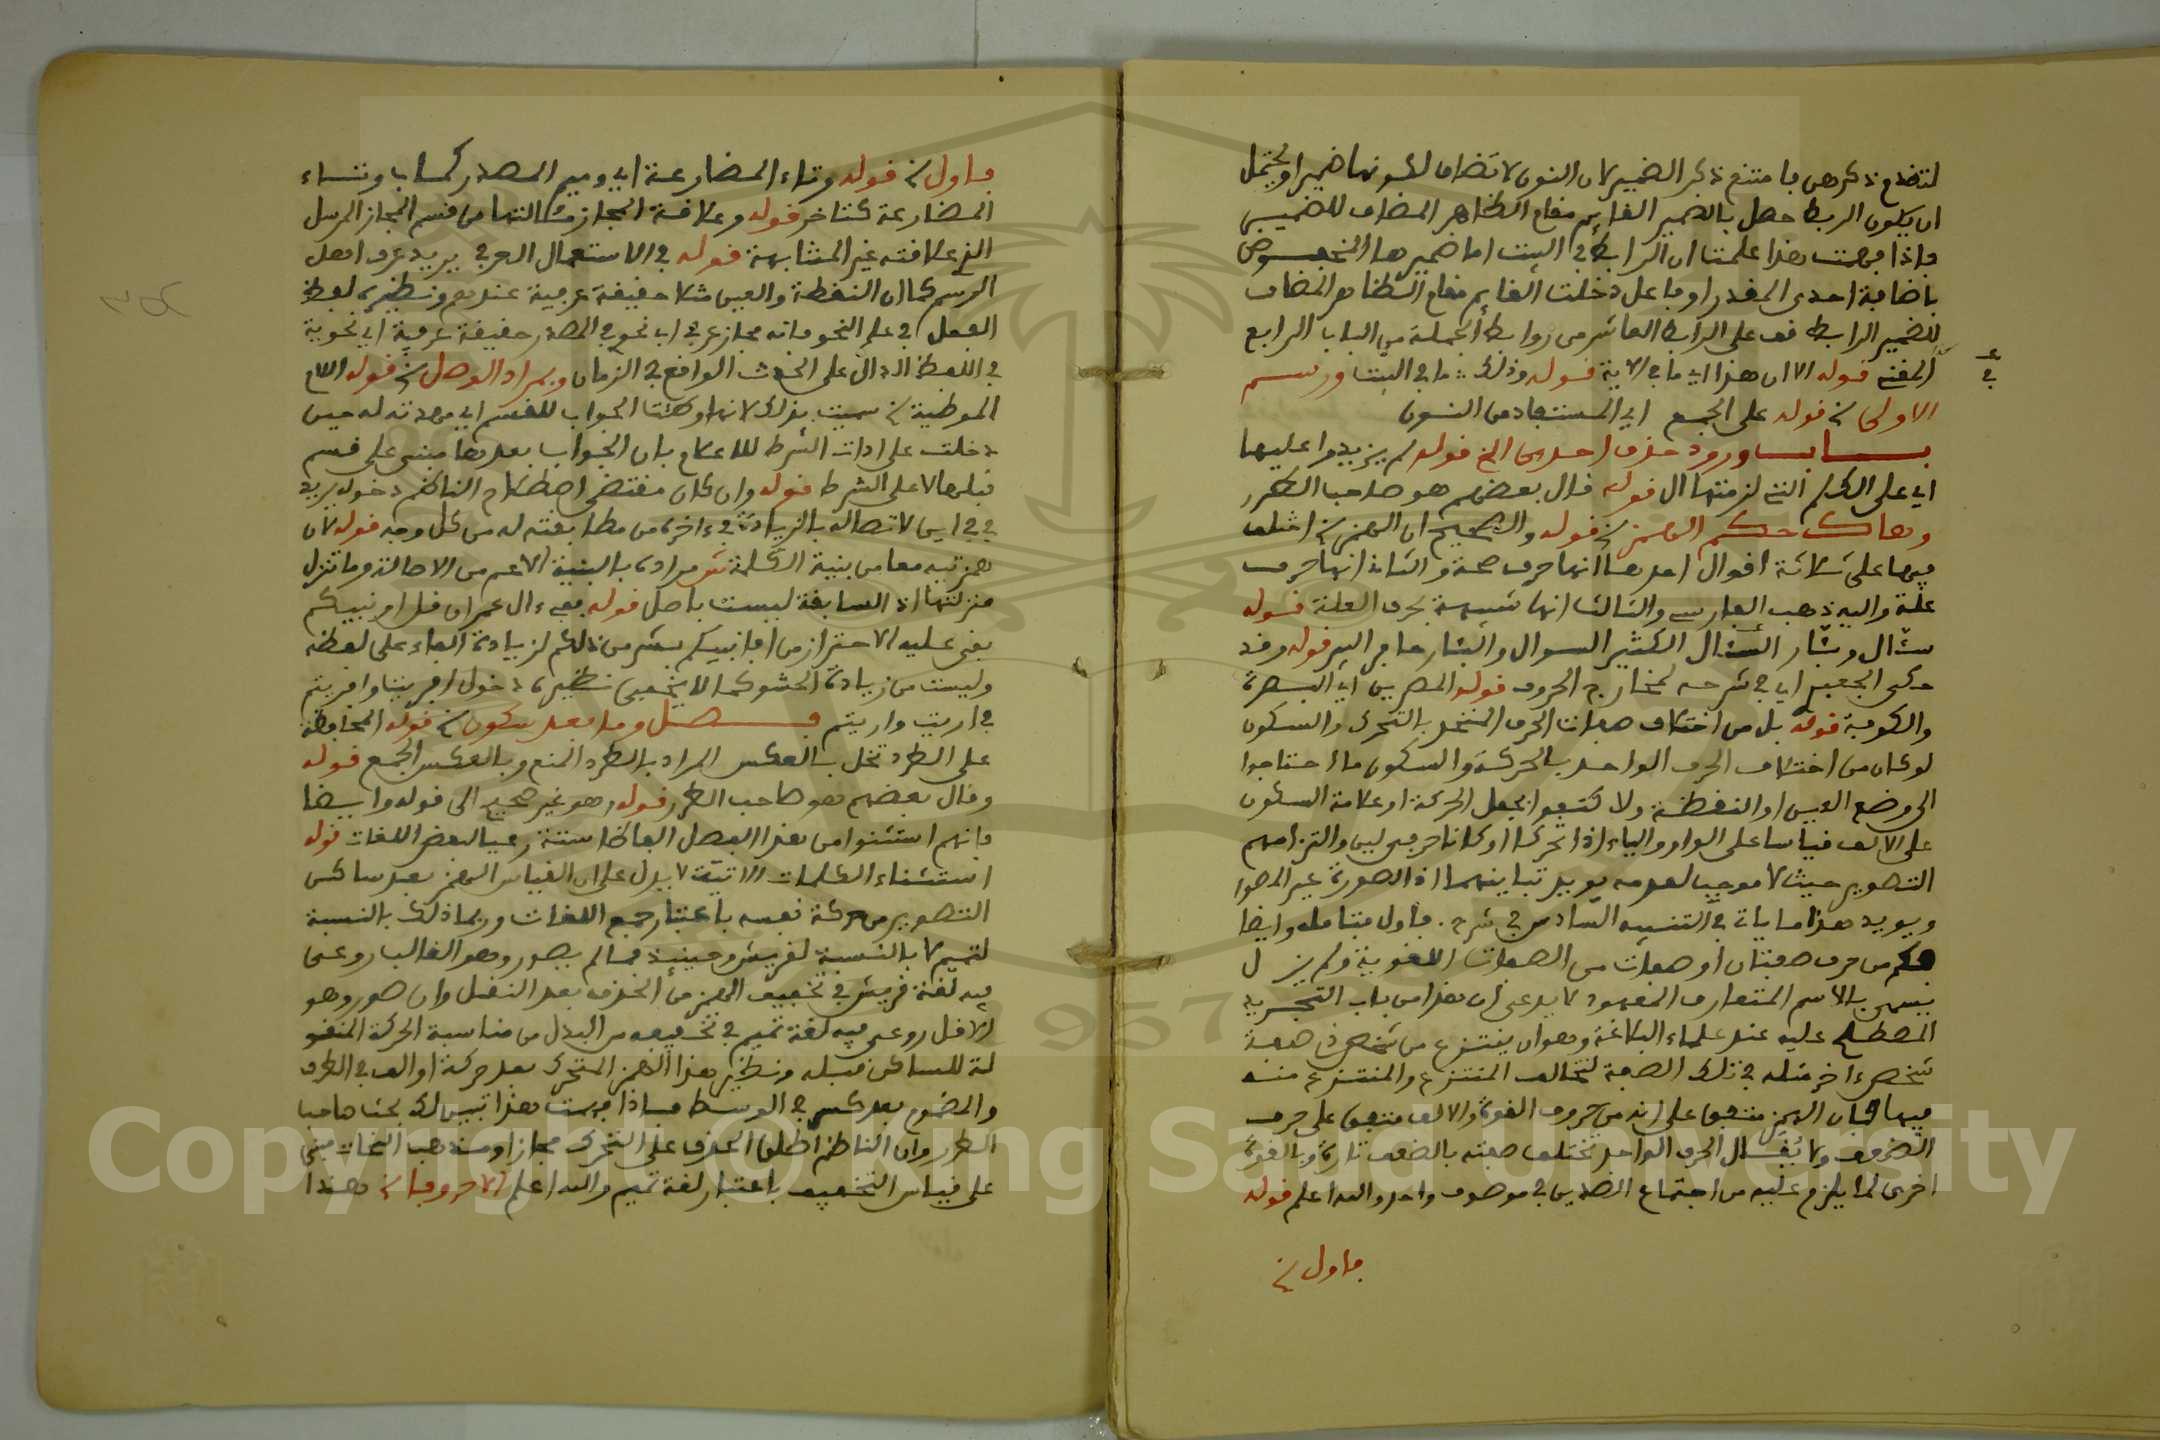 لتقدم ذكرهن فامتنع ذكر الضمير لان النون لا تضاف لكونها ضميرا ويحتمل
ان يكون الربط حصل بالضمير القايم مقام الظاهر المضاف للضمير
واذا فهمت هذا علمت ان الرابط في البيت اما ضميرها المخصوص
باضافة احدى المقدر او فاعل دخلت القايم مقام الظاهر المضاف
للضمير الرابط قف على الرابط العاشر من روابط الجملة من الباب الرابع
المغني قوله الا ان هذا اي ما في الاية قوله وذلك ما في البيت ورسم
الاولى قوله على الجمع اي المستفاد من النون
باب ورود حذف احدى الخ قوله لم يزيدوا عليها
اي على الكلم التي لزمتها ال قوله قال بعضهم هو صاحب الطرر
وهاك حكم الهمز قوله والصحيح ان الهمز اختلف
فيها على ثلاثة اقوال احدها انها حرف صحة والثاني انها حرف
علة واليه ذهب الفارسي والثالث انها شبيهة بحرف العلة قوله
سئال وبئار السئال الكثير السوال والبئار حافر البير قوله وقد
حكى الجعبري اي في شرحه لمخارج الحروف قوله المصريين اي البصرة
والكوفة قوله بل من اختلاف صفات الحرف المتحد بالتحرك والسكون
لو كان من اختلاف الحرف الواحد بالحركة والسكون ما احتاجوا
الى وضع العين او النقطة ولا كتفوا بجعل الحركة او علامة السكون
على الالف قياسا على الواو والياء اذا تحركا او كانا حرفي لين والتزامهم
التصوير حيث لا موجب لعدمه يويد تباينهما اذ الصورة غير المصور
ويويد هذا ما ياتي في التنبيه السادس في شرح فاول بتامله وايضا
فكم من حرف صفتان او صفات من الصفات اللغوية ولم يزل
يسمى بالاسم المتعارف المعهود لا يدعى ان هذا من باب التجريد
المصطلح عليه عند علماء البلاغة وهو ان ينتزع من شخص ذي صفة
شخص ءاخر مثله في تلك الصفة لتخالف المنتزع والمنتزع منه
فيها فان الهمز متفق على انه من حروف القوة والالف متفق على حرف
الضعف ولا يقال الحرف الواحد تختلف صفته بالضعف تارة وبالقوة
اخرى لما يلزم عليه من اجتماع الضدين في موصوف واحد والله اعلم قوله
فاول
فاول قوله وتاء المضارعة اي وميم المصدر كمئاب وتشاء
المضارعة كتئاخر قوله وعلاقة المجاز مئالتها من قسم المجاز المرسل
الذي علاقته غير المشابهة قوله في الاستعمال العرفي يريد عرف اهل
الرسم كما ان النقطة والعين مثلا حقيقة عرفية عندهم ونظيره لفظ
الفعل في علم النحو فانه مجاز عرفي اي نحوي في المصدر حقيقة عرفية اي نحوية
في اللفظ الدال على الحدث الواقع في الزمان وبمراد الوصل قوله اللام
الموطية سميت بذلك لانها وطئت الجواب للقسم اي مهدته له حين
دخلت على ادات الشرط للاعلام بان الجواب بعدها مبني على قسم
قبلها لا على الشرط قوله وان كان مقتضى اصطلاح الناظم دخوله يريد
في في اين لاتصاله بالزيادة في ءاخره من مطابقته له من كل وجه قوله لان
همزتيه معا من بنية الكلمة مراده بالبنية الاعم من الاصالة وما تنزل
منزلتها اذ السابقة ليست باصل قوله بقي ءال عمران قل اونبيكم
بقي عليه الاحتراز من افانبيكم بشر من ذلكم لزيادة الفاء على لفظه
وليست من زيادة الحشو كما لا يخفى نظيره دخول افريت وافريتم
في اريت واريتم فصل وما بعد سكون قوله المحافظة
على الطرد تخل بالعكس المراد بالطرد المنع وبالعكس الجمع قوله
وقال بعضهم هو صاحب الطرر قوله وهو غير صحيح الى قوله وايضا
فانهم استثنوا من هذا الفصل الفاظا ستة رعيا لبعض اللغات قوله
استثناء الكلمات الاتية لا يدل على ان القياس الهمز بعد ساكن
التصوير من حركة نفسه باعتبار جميع اللغات وبما ذلك بالنسبة
لتميم لا بالنسبة لقريش وحينيذ فما لم يصور وهو الغالب روعي
فيه لغة قريش في تخفيف الهمز من الحذف بعد النقل وان صور وهو
الاقل روعي فيه لغة تميم في تخفيفه من البدل من مناسبة الحركة المنقو
لة للساكن قبله ونظير هذا الهمز المتحرك بعد حركة او الف في الطرف
والمضموم بعد كسر في الوسط فاذا فهمت هذا تبين لك بحث صاحب
الطرر وان الناظم اطلق الحذف على التحرك مجازا ومذهب النحات مبني
على قياس التخفيف باعتبار لغة تميم والله اعلم الا حروفا وهذا
Copyright © King Saud University
1957